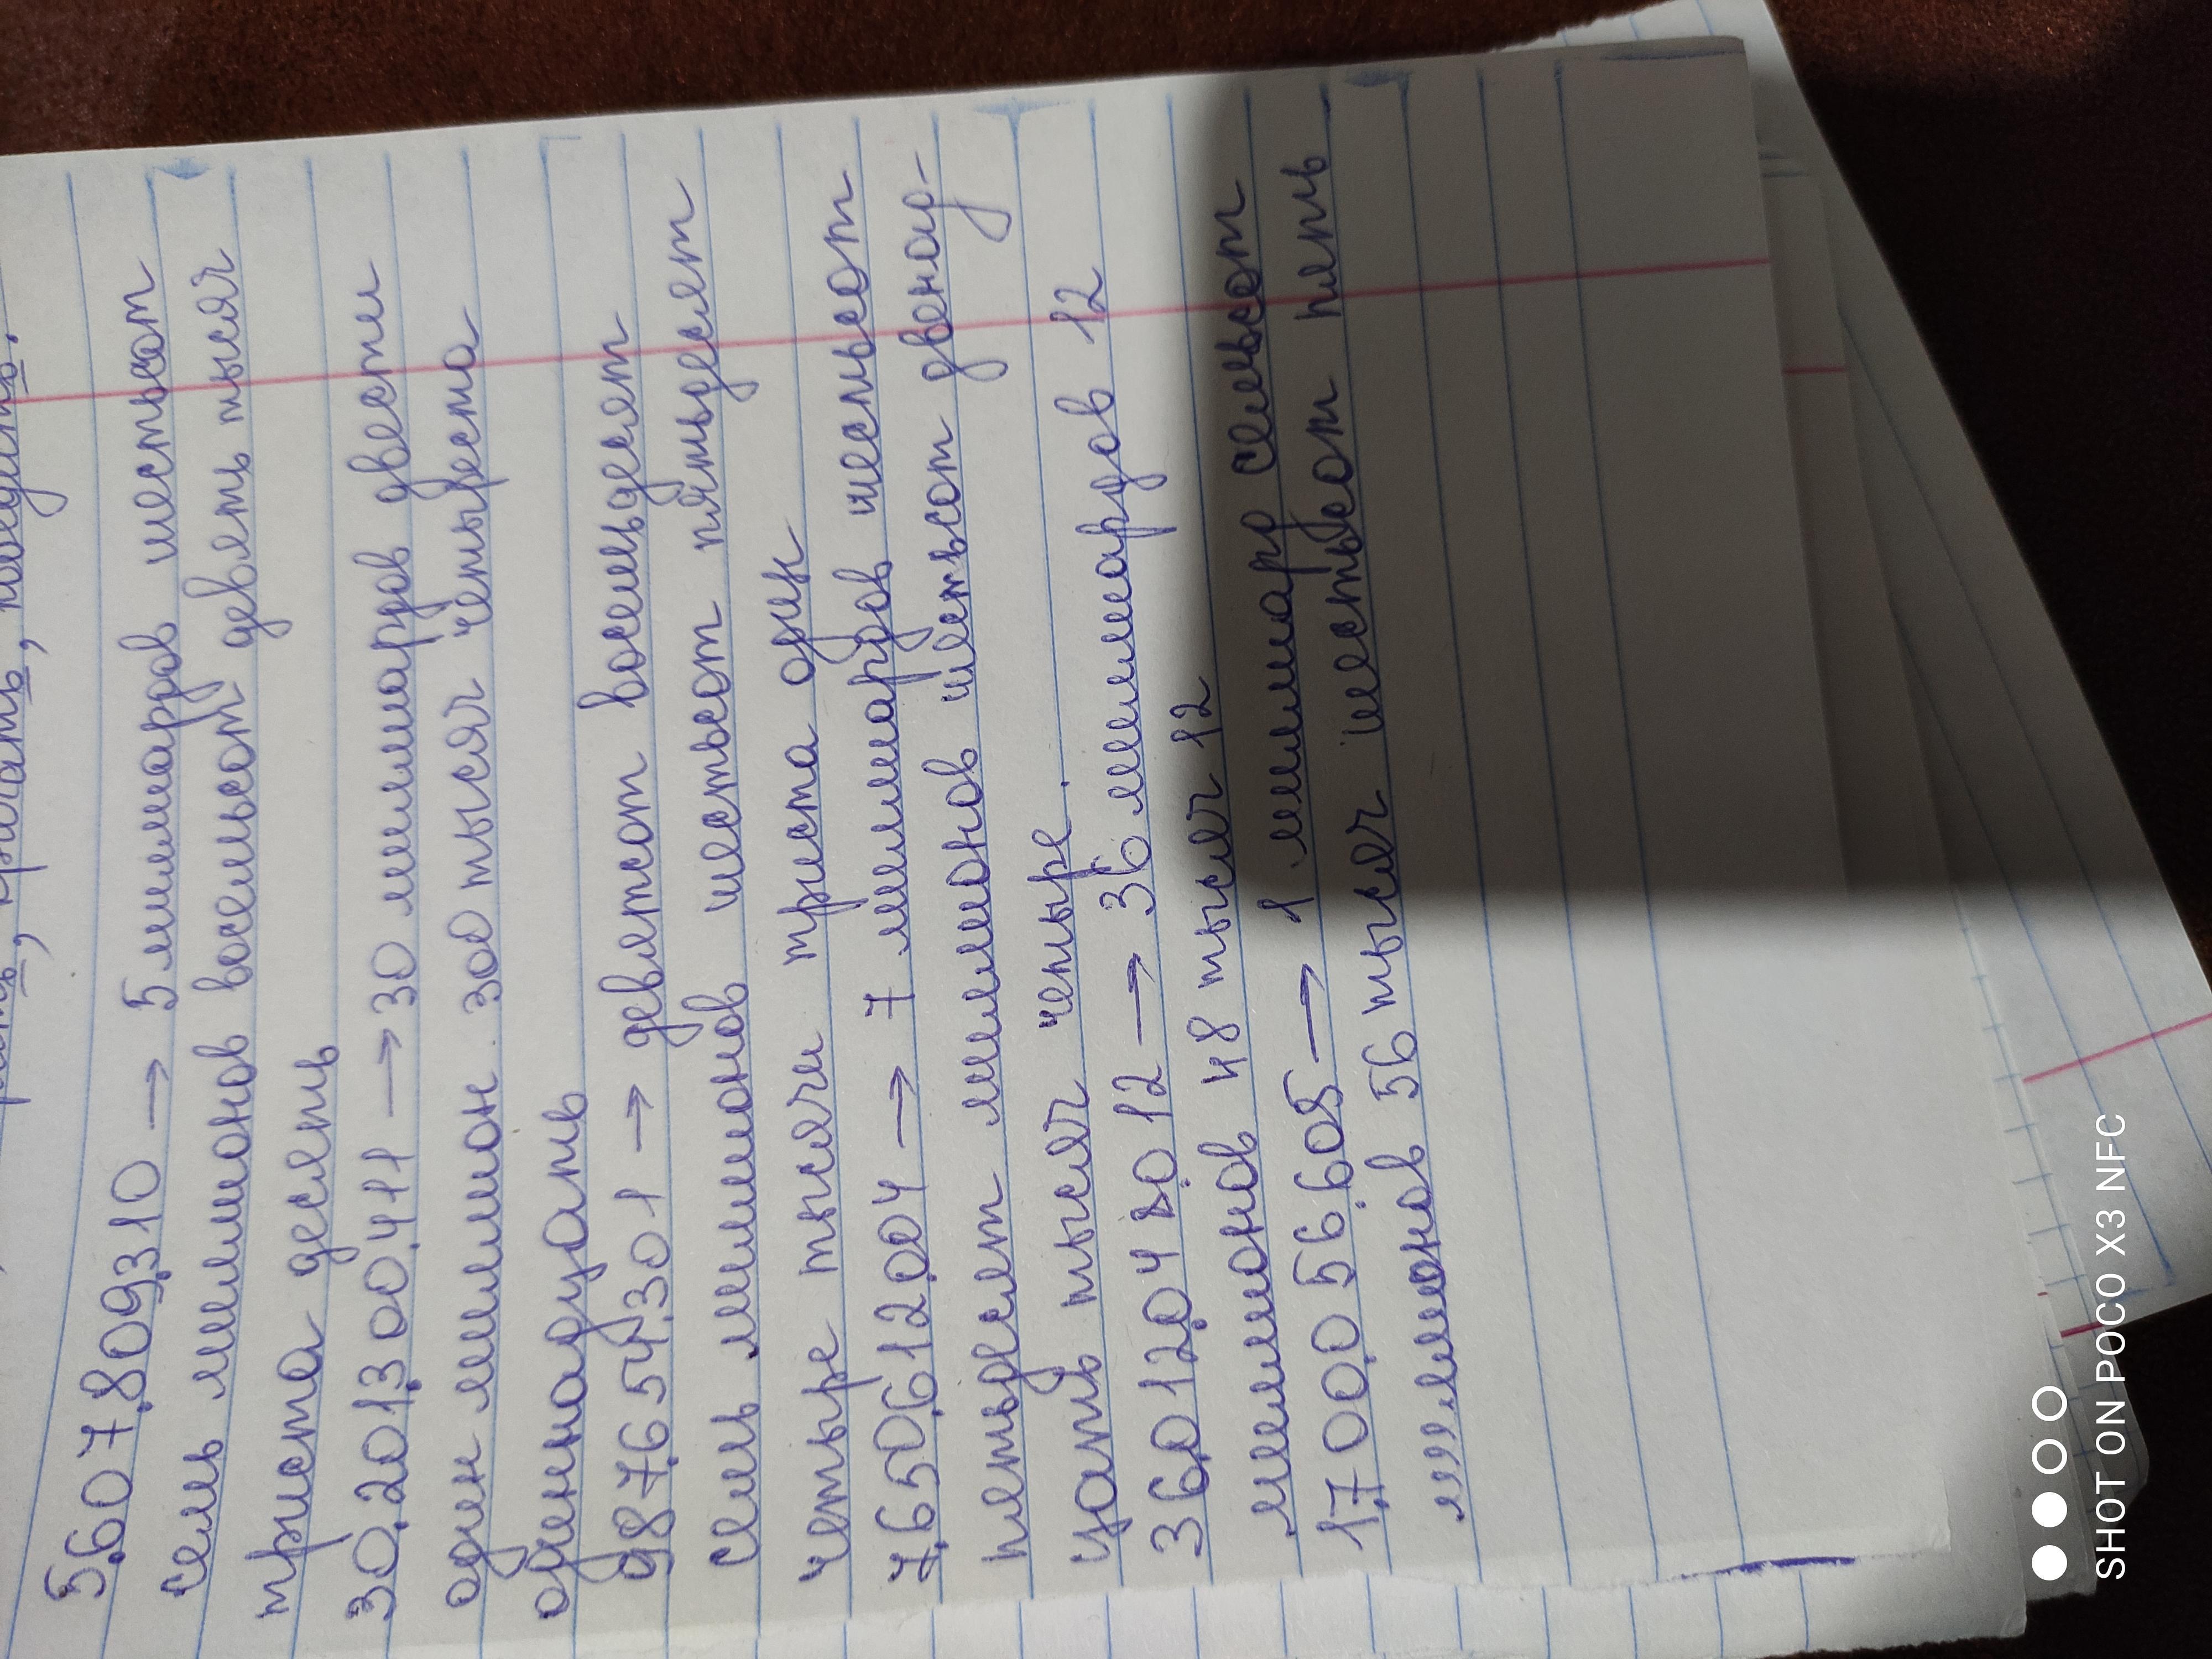 кричать, победить.
5.607.809.310 → 5 миллиардов шестьсот
семь миллионов восемьсот девять тысяч
триста десять
30.201.300.411 → 30 миллиардов двести
один миллион 300 тысяч четыреста
одиннадцать
987.654.301 → девятсот восемьдесят
семь миллионов шестьсот пятьдесят
четыре тысячи триста один
7.650.612.004 → 7 миллиардов шестьсот
пятьдесят миллионов шестьсот двенад-
цать тысяч четыре.
36.012.048.012 → 36 миллиардов 12
миллионов 48 тысяч 12
1.700.056.605 → 1 миллиард семьсот
миллионов 56 тысяч шестьсот пять
SHOT ON POCO X3 NFC